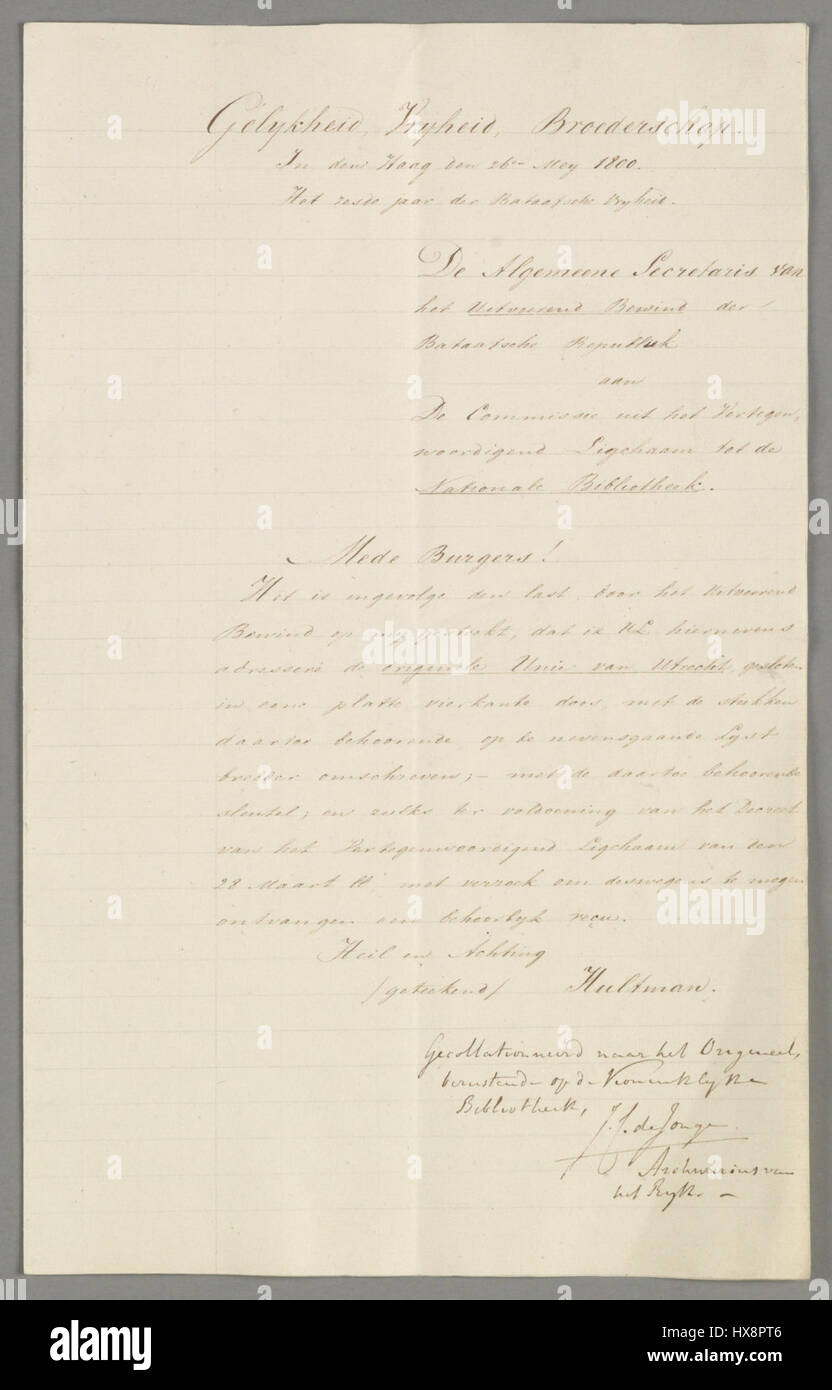 Gelykheid, Vryheid, Broederschap.
In den Haag den 26en Mey 1800.
Het zesde jaar der Bataafsche Vryheid.
De Algemeene Secretaris van
het Uitvoerend Bewind der
Bataafsche Republiek
aan
De Commissie uit het Vertegen,
woordigend Ligchaam tot de
Nationale Bibliotheek.
Mede Burgers!
Het is ingevolge den last, door het Uitvoerend
Bewind op my verstrekt, dat ik UL hiernevens
adresseere de originele Unie van Utrecht, gesloten
in eene platte vierkante doos, met de stukken
daartoe behoorende, op de nevensgaande Lyst
breeder omschreven; – met de daartoe behoorende
sleutel; en zulks ter voldoening van het Decreet
van het Vertegenwoordigend Ligchaam van den
28 Maart ll. met verzoek om deswegens te mogen
ontvangen een behoorlyk reçu.
Heil en Achting
/geteekend/ Hultman.
Gecollationneerd naar het Origineel,
berustende op de Koninklyke
Bibliotheek,
J. C. de Jonge
Archivarius van
het Ryk. –
a alamy stock photo
HX8PT6
www.alamy.com